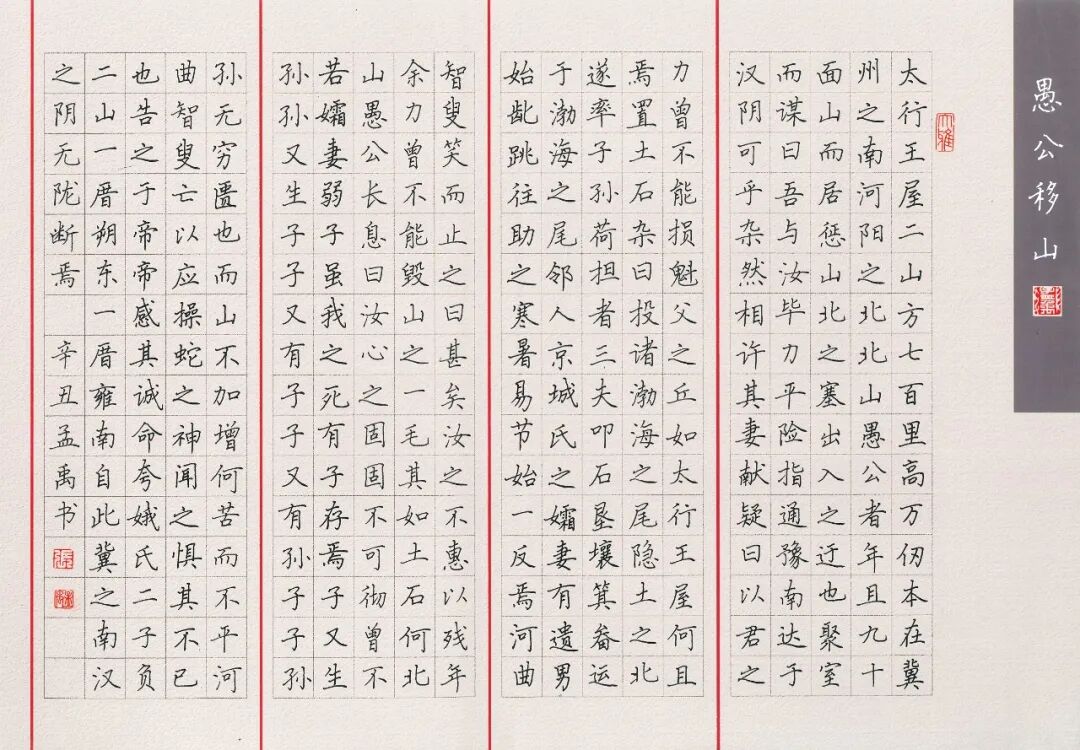 愚公移山
大雅
太行王屋二山方七百里高万仞本在冀
州之南河阳之北北山愚公者年且九十
面山而居惩山北之塞出入之迂也聚室
而谋曰吾与汝毕力平险指通豫南达于
汉阴可乎杂然相许其妻献疑曰以君之
力曾不能损魁父之丘如太行王屋何且
焉置土石杂曰投诸渤海之尾隐土之北
遂率子孙荷担者三夫叩石垦壤箕畚运
于渤海之尾邻人京城氏之孀妻有遗男
始龀跳往助之寒暑易节始一反焉河曲
智叟笑而止之曰甚矣汝之不惠以残年
余力曾不能毁山之一毛其如土石何北
山愚公长息曰汝心之固固不可彻曾不
若孀妻弱子虽我之死有子存焉子又生
孙孙又生子子又有子子又有孙子子孙
孙无穷匮也而山不加增何苦而不平河
曲智叟亡以应操蛇之神闻之惧其不已
也告之于帝帝感其诚命夸娥氏二子负
二山一厝朔东一厝雍南自此冀之南汉
之阴无陇断焉 辛丑孟禹书